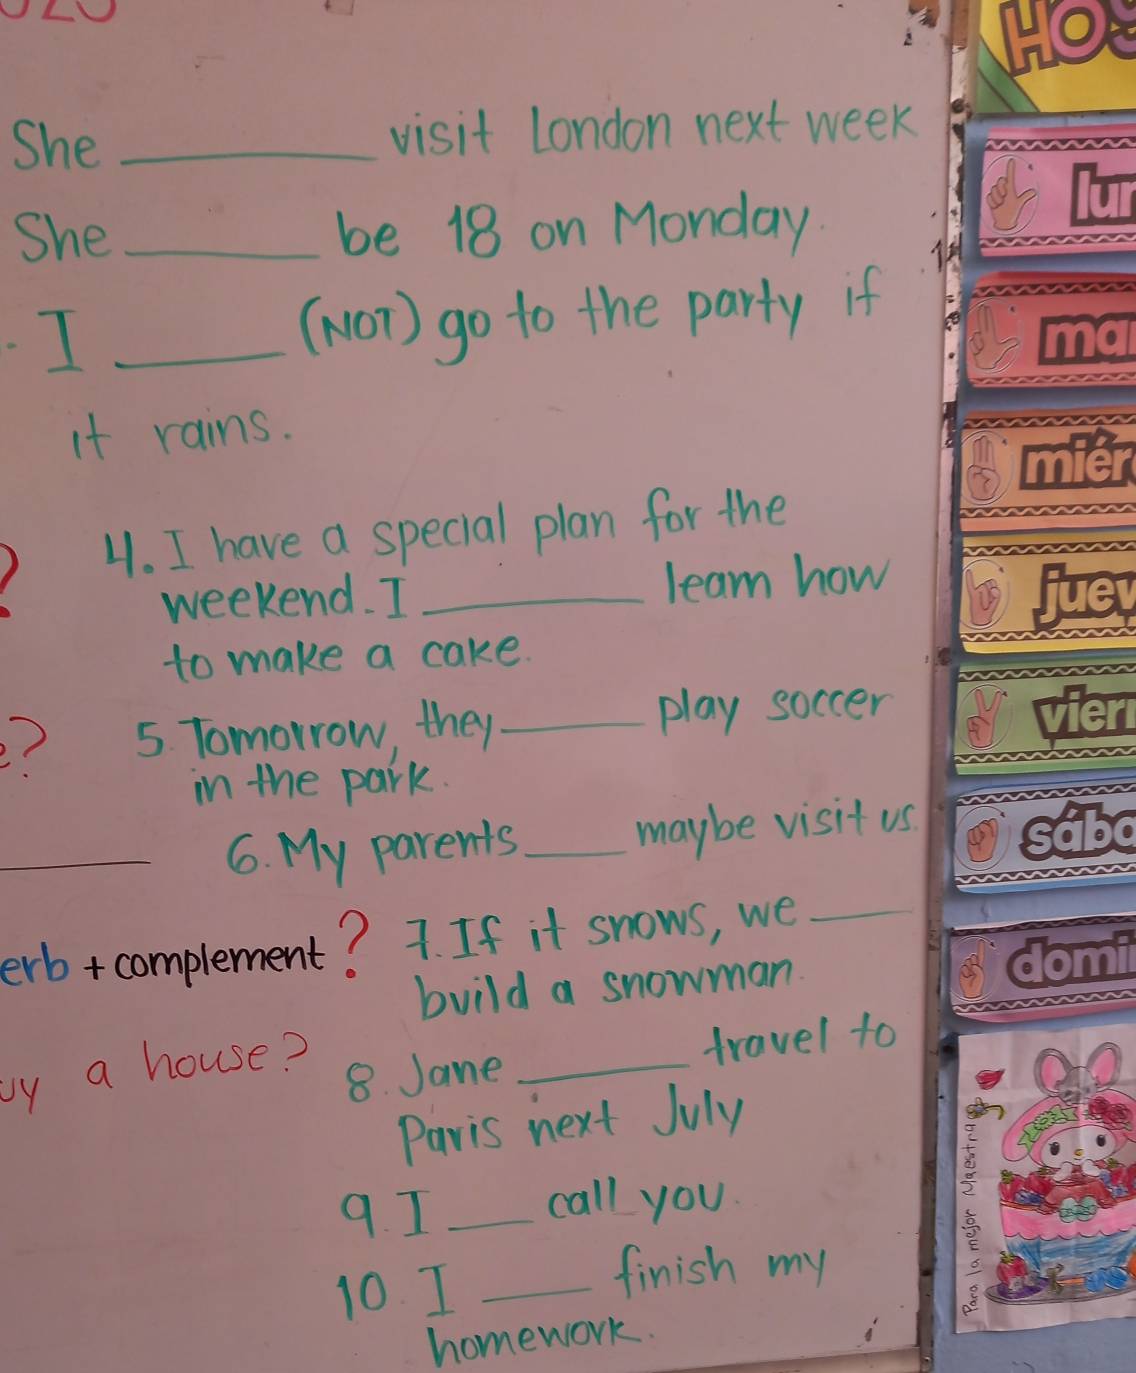 She ________ visit London next week
She ________ be 18 on Monday.
I ________ (NOT) go to the party if
it rains.
4. I have a special plan for the
weekend. I ________ learn how
to make a cake.
5. Tomorrow, they ________ play soccer
in the park.
6. My parents ____ maybe visit us.
erb + complement ?
7. If it snows, we ____
build a snowman.
a house?
8. Jane ________ travel to
Paris next July
9. I ____ call you.
10. I ____ finish my
homework.
HO
lun
mar
miér
juev
viern
sába
domi
Para la mejor Maestra